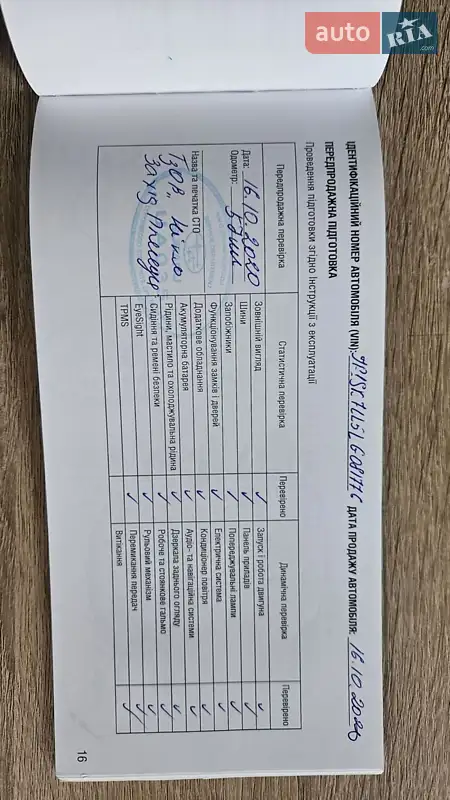 auto RIA .com
ІДЕНТИФІКАЦІЙНИЙ НОМЕР АВТОМОБІЛЯ (VIN): ДАТА ПРОДАЖУ АВТОМОБІЛЯ: 16.10.2020
ПЕРЕДПРОДАЖНА ПІДГОТОВКА
Проведення підготовки згідно Інструкції з експлуатації
Передпродажна перевірка
Дата: 16.10.2020
Одометр: 5
Назва та печатка СТО
Захід
Статистична перевірка Перевірено
Зовнішній вигляд ✓
Шини ✓
Запобіжники ✓
Функціонування замків і дверей ✓
Додаткове обладнання ✓
Акумуляторна батарея ✓
Рідини, мастило та охолоджувальна рідина ✓
Сидіння та ремені безпеки ✓
EyeSight ✓
TPMS
Динамічна перевірка Перевірено
Запуск і робота двигуна ✓
Панель приладів ✓
Попереджувальні лампи ✓
Електрична система ✓
Кондиціонер повітря ✓
Аудіо- та навігаційна системи ✓
Дзеркала заднього огляду ✓
Робоче та стоянкове гальмо ✓
Рульовий механізм ✓
Перемикання передач ✓
Витікання ✓
16